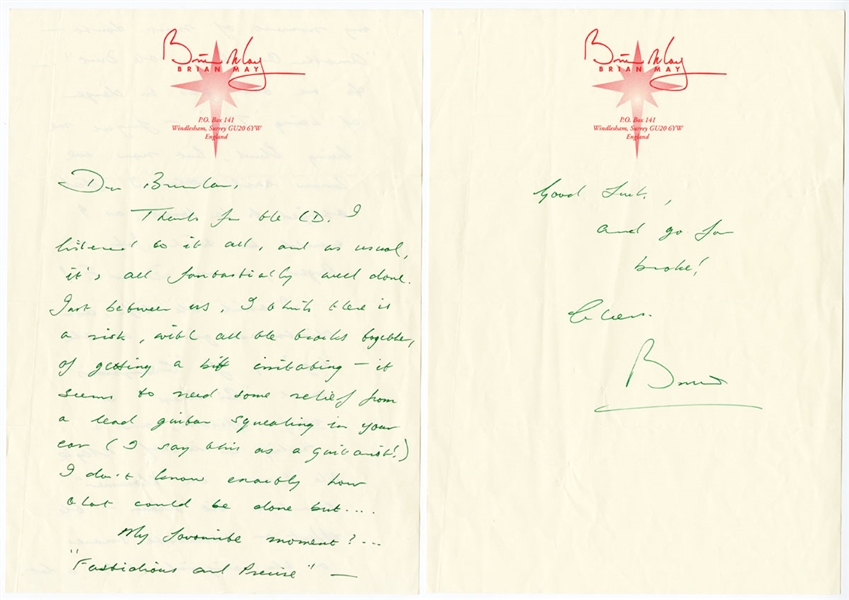 Brian May
BRIAN MAY
P.O. Box 141
Windlesham, Surrey GU20 6YW
England
Dear Brendan,
Thanks for the CD. I
listened to it all, and as usual,
it's all fantastically well done.
Just between us, I think there is
a risk, with all the tracks together,
of getting a bit irritating — it
seems to need some relief from
a lead guitar squealing in your
ear (I say this as a guitarist!)
I don't know exactly how
that could be done but....
My favourite moment?...
"Fastidious and Precise" —
Brian May
BRIAN MAY
P.O. Box 141
Windlesham, Surrey GU20 6YW
England
Good luck,
and go for
broke!
Cheers.
Brian